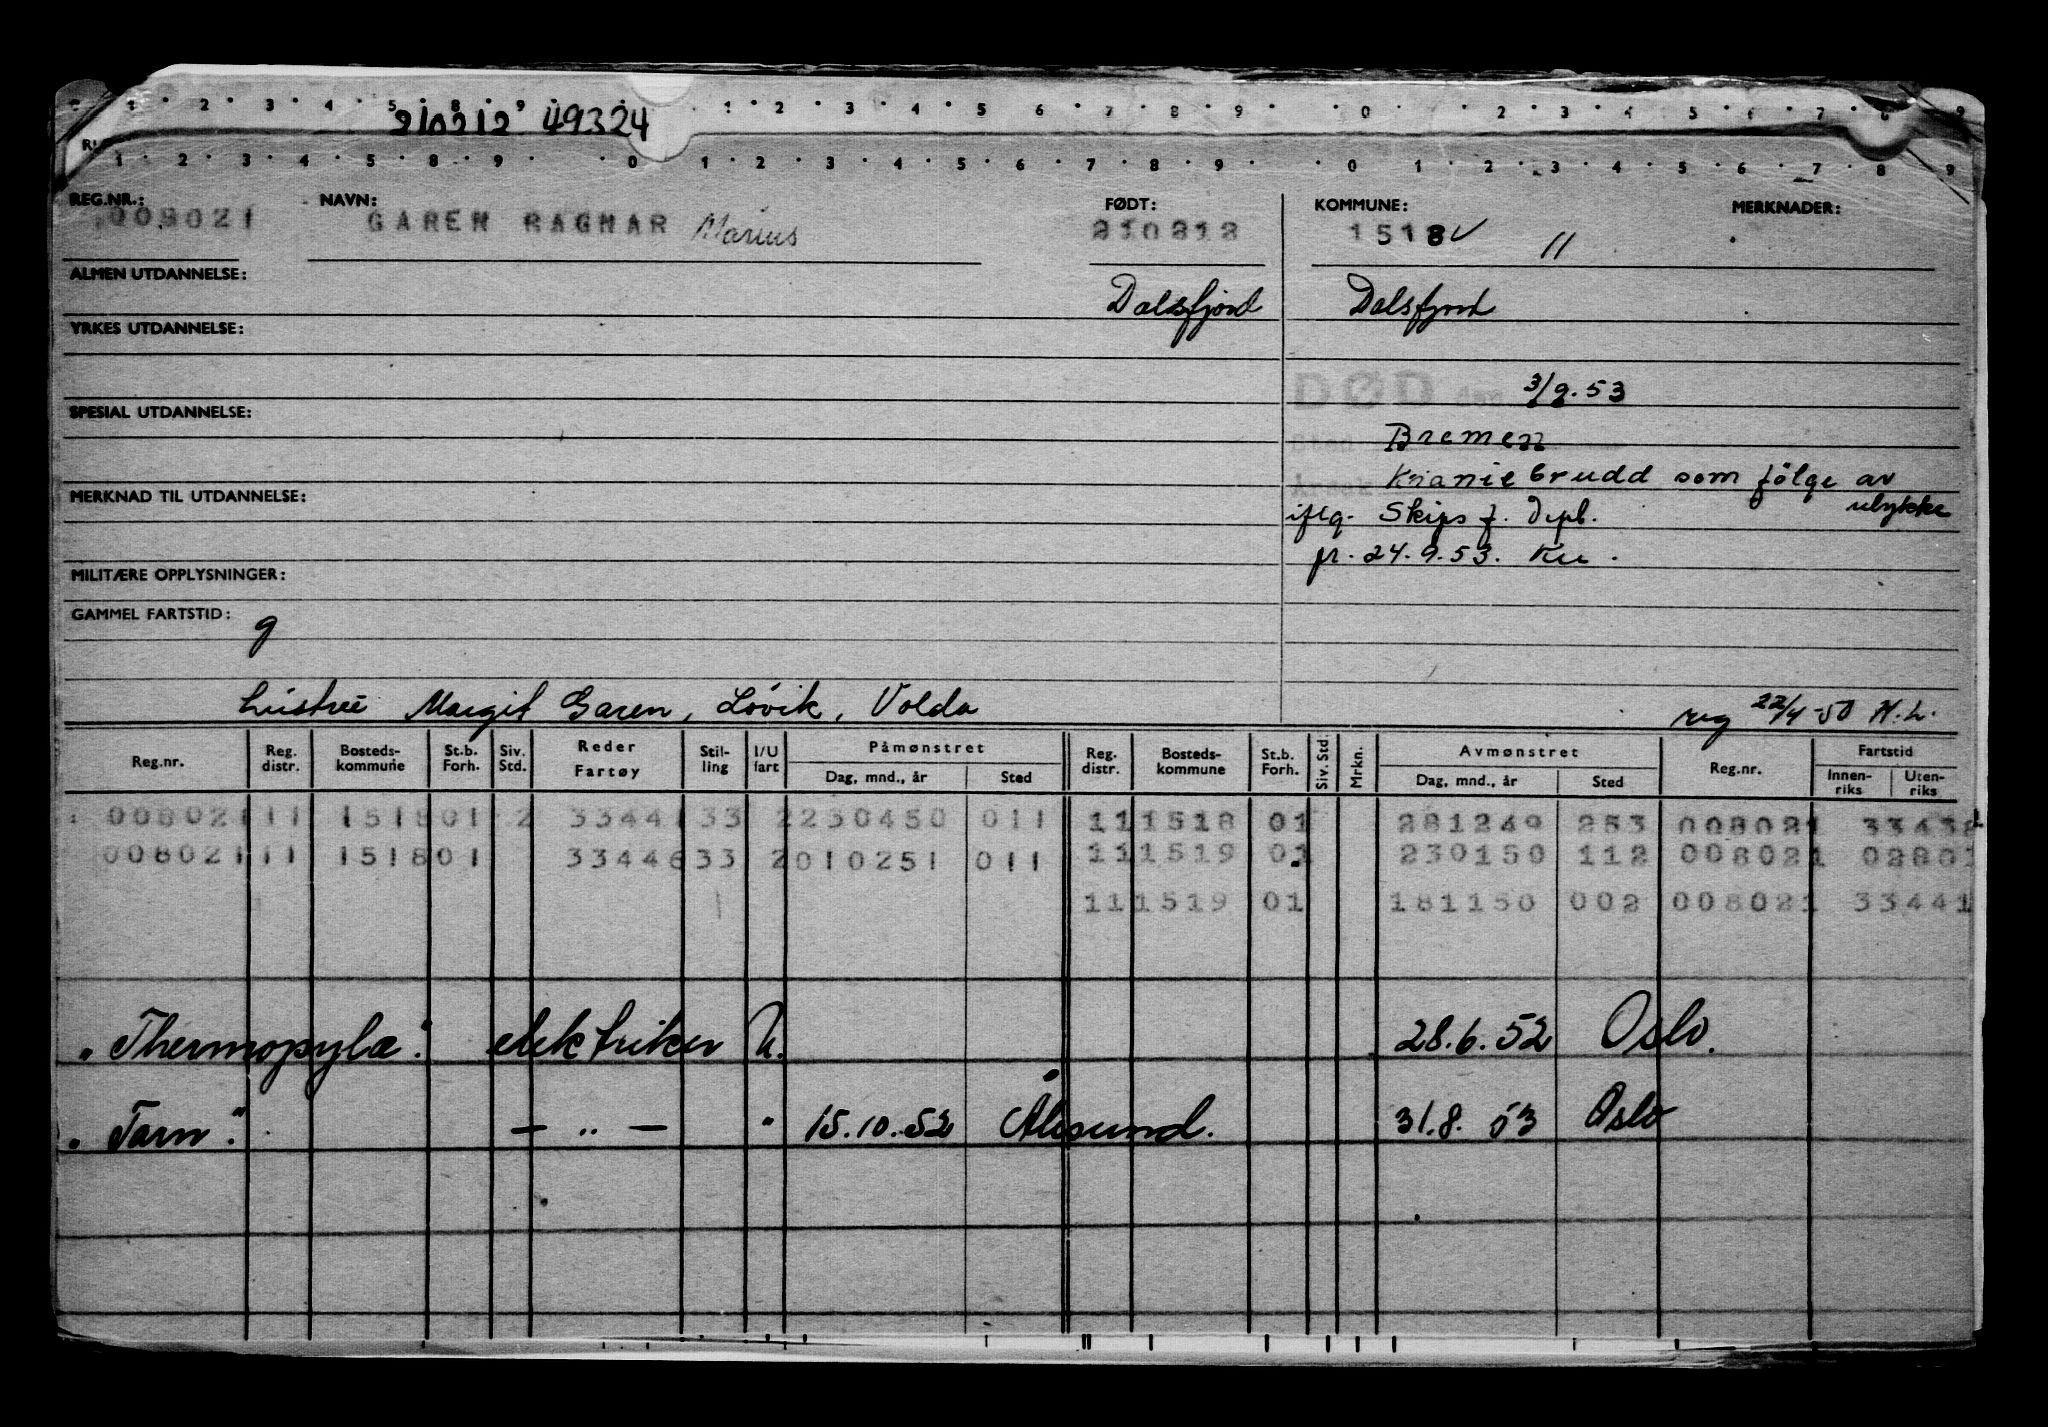 1 2 3 4 5 8 9 0 1 2 3 4 5 6 7 8 9 0 2 3 4 5 6 7 8 9
210212 49324
1 2 3 4 5 8 9 0 1 2 3 4 5 6 7 8 9 0 1 2 3 4 5 6 7 8 9
REG.NR.: NAVN: FØDT: KOMMUNE: MERKNADER:
008021 GAREN RAGNAR Marius 210212 1518 V 11
ALMEN UTDANNELSE: Dalsfjord Dalsfjord
YRKES UTDANNELSE:
DØD den 3/9.53
SPESIAL UTDANNELSE:
Sted Bremen
Årsak Kraniebrudd som følge av
MERKNAD TIL UTDANNELSE:
iflg. Skipsf. Depl. ulykke
pr. 24.9.53. Ku.
MILITÆRE OPPLYSNINGER:
GAMMEL FARTSTID: g
hustru Margit Garen, Løvik, Volda reg 22/4-50 H.L.
Reg.nr. Reg. distr. Bosteds-kommune St.b. Forh. Siv. Std. Reder Fartøy Stil-ling I/U fart Påmønstret Dag, mnd., år Sted Reg. distr. Bosteds-kommune St.b. Forh. Siv. Std. Mrkn. Avmønstret Dag, mnd., år Sted Reg.nr. Fartstid Innen-riks Uten-riks
008021 11 1518 01 2 33441 33 2 230450 011 11 1518 01 281249 253 008021 33438
008021 11 1518 01 33446 33 2 010251 011 11 1519 01 230150 112 008021 02801
11 1519 01 181150 002 008021 33441
"Thermopylæ". elektriker U. 28.6.52 Oslo.
"Tarn". — " — " 15.10.52 Ålesund. 31.8.53 Oslo